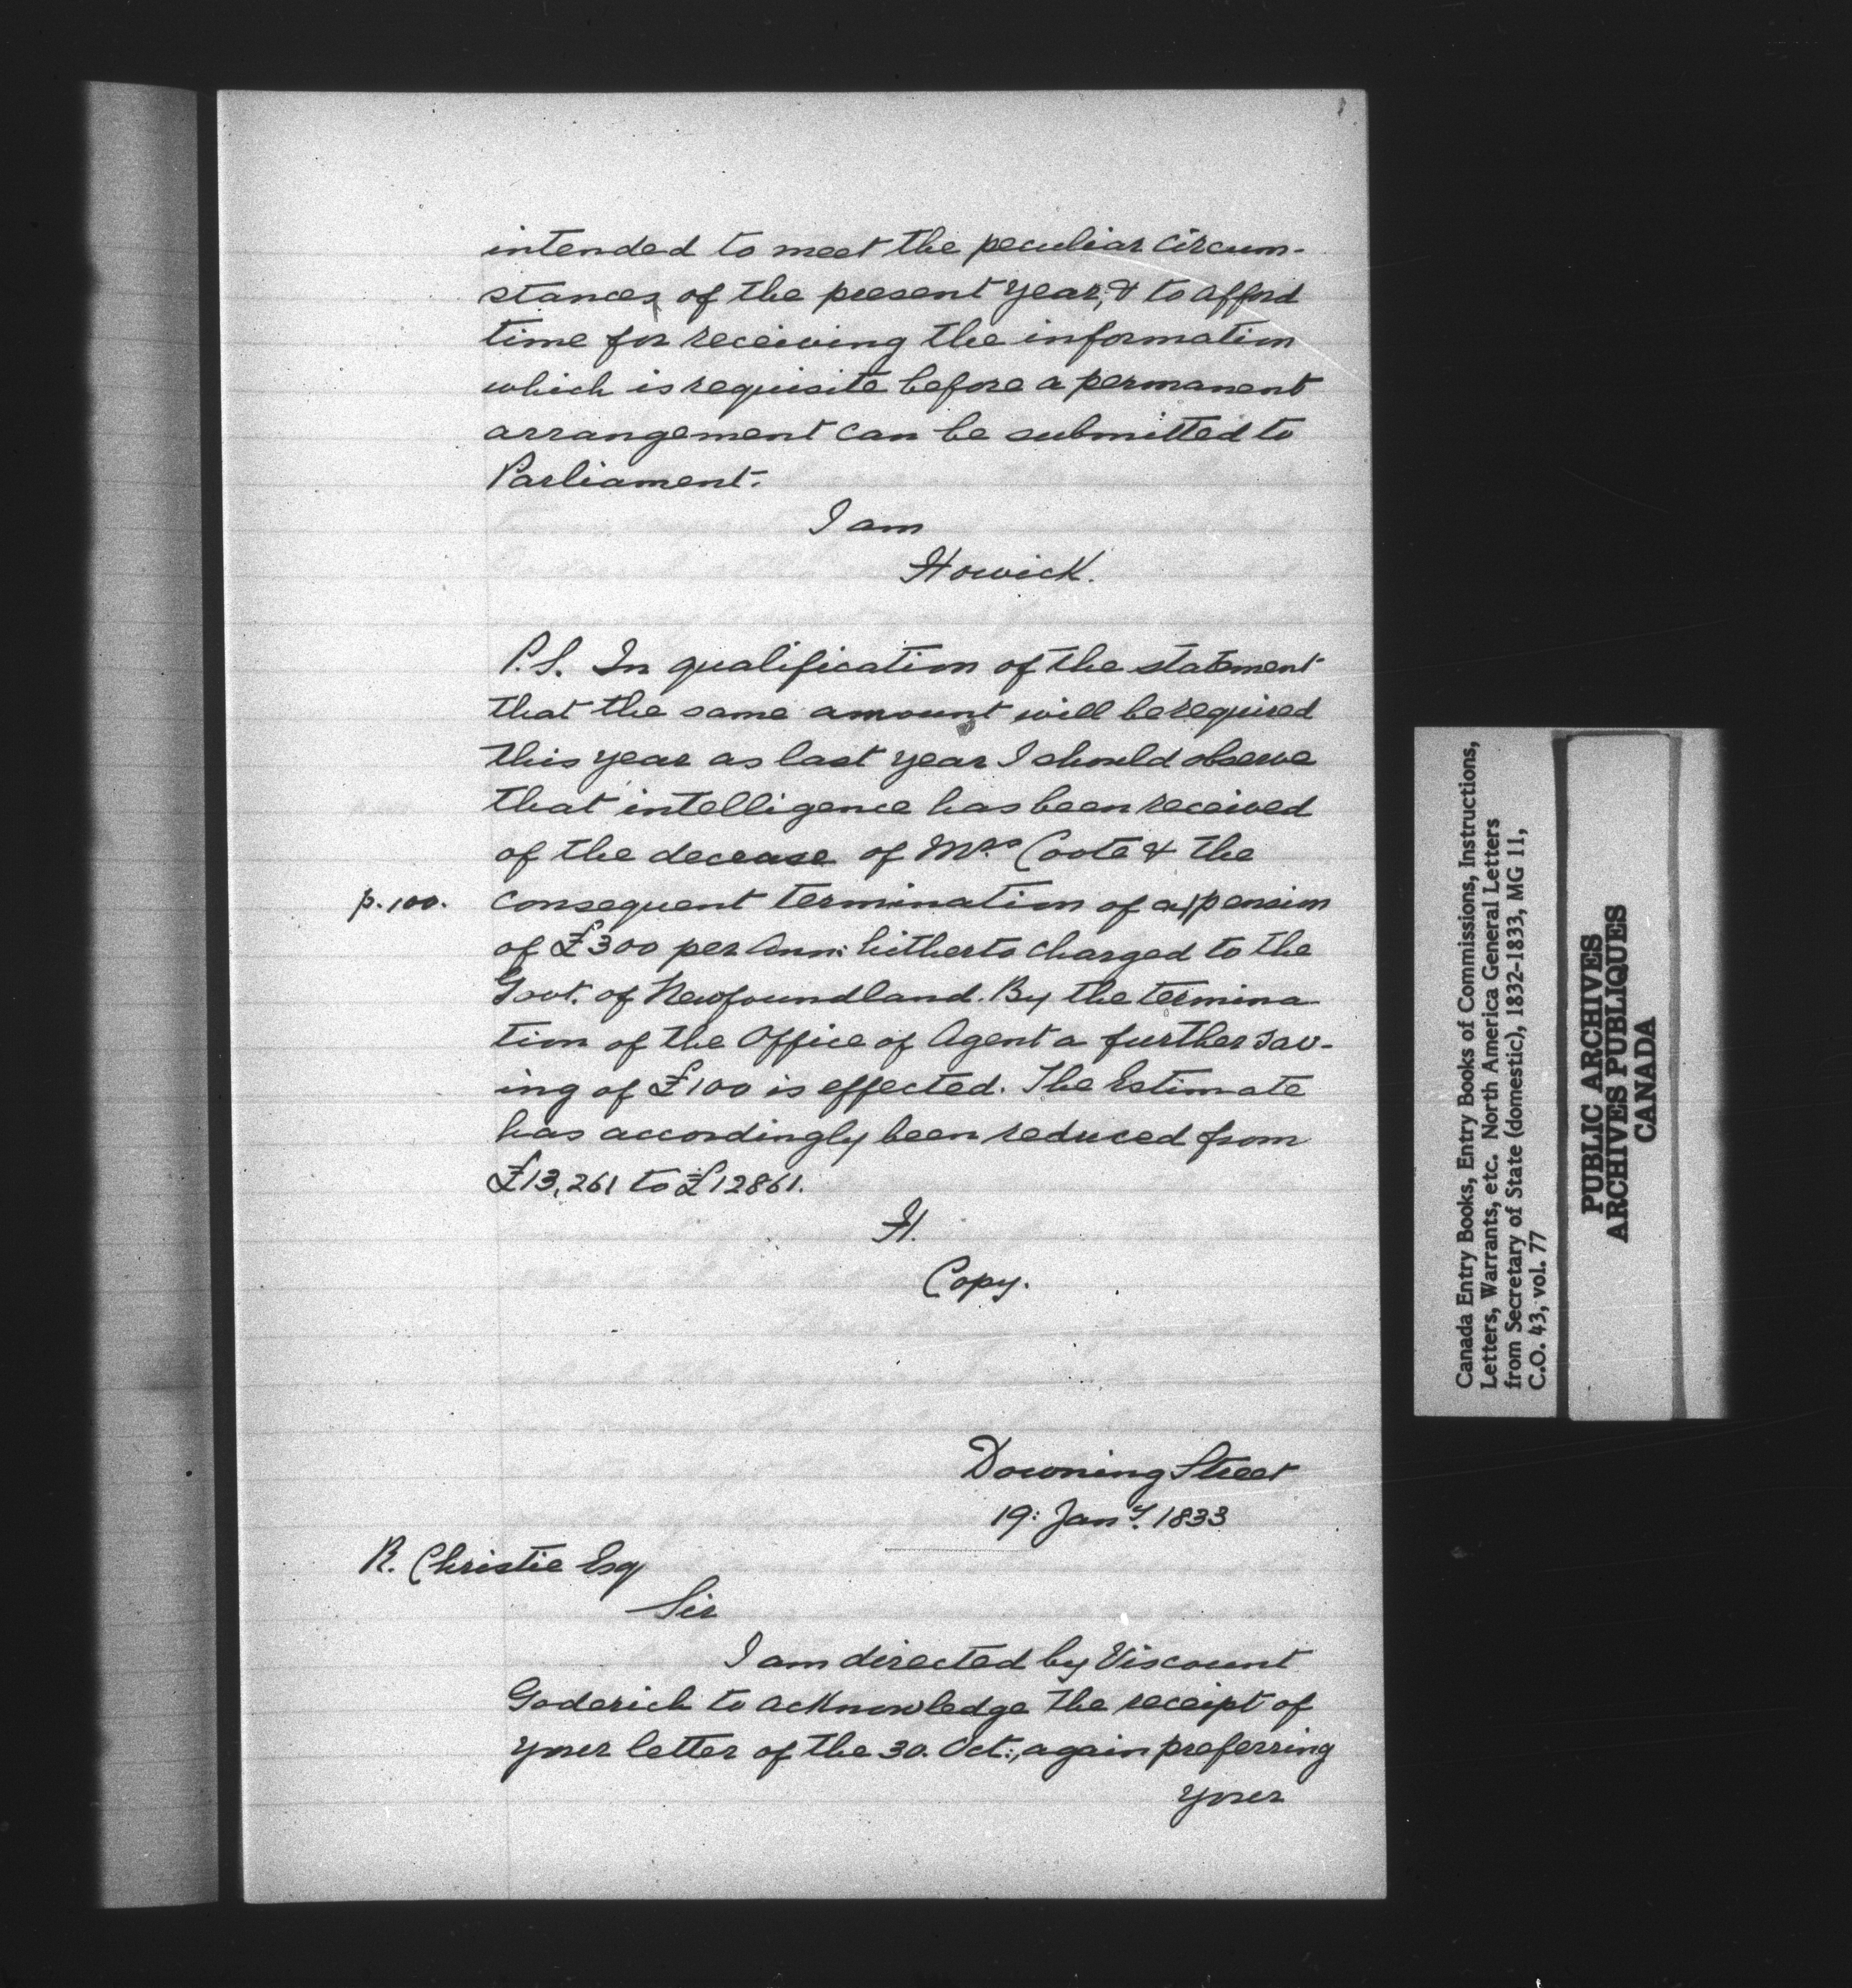 intended to meet the peculiar circum-
stances of the present year, & to afford
time for receiving the information
which is requisite before a permanent
arrangement can be submitted to
Parliament.
I am
Howick.
P.S. In qualification of the statement
that the same amount will be required
this year as last year I should observe
that intelligence has been received
of the decease of Mrs. Coote & the
p. 100. consequent termination of a|pension
of £300 per Ann: hitherto charged to the
Govt. of Newfoundland. By the termina-
tion of the Office of Agent a further sav-
ing of £100 is effected. The Estimate
has accordingly been reduced from
£13,261 to £12861.
H.
Copy.
Downing Street
19: Jany. 1833
R. Christie Esq
Sir
I am directed by Viscount
Goderich to acknowledge the receipt of
your letter of the 30. Oct:, again preferring
your
Canada Entry Books, Entry Books of Commissions, Instructions,
Letters, Warrants, etc. North America General Letters
from Secretary of State (domestic), 1832-1833, MG 11,
C.O. 43, vol. 77
PUBLIC ARCHIVES
ARCHIVES PUBLIQUES
CANADA